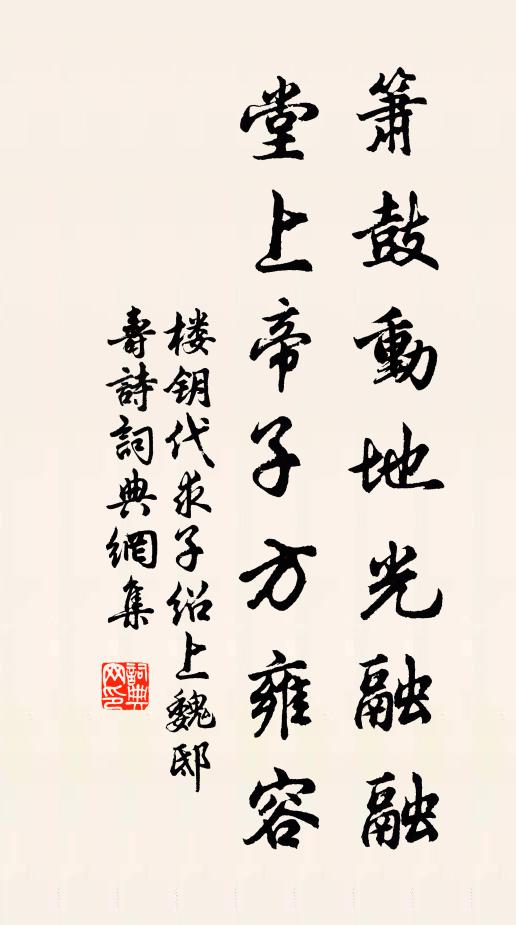 箫鼓動地光融融
堂上帝子方雍容
楼钥代求子绍上魏邸
壽詩詞典網集
詞典网印